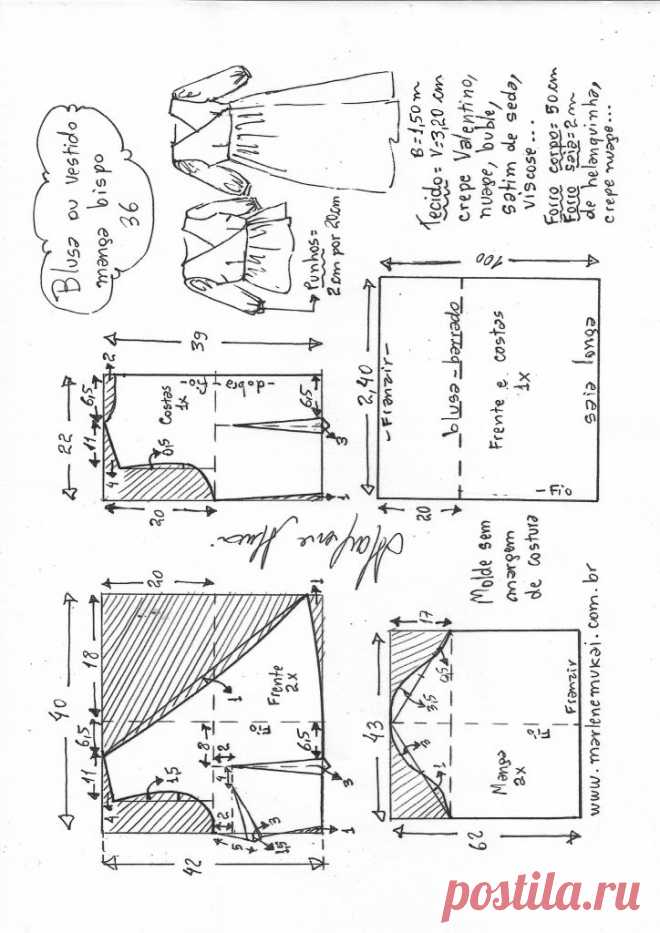 Blusa ou vestido
manga bispo
36
Punhos=
2cm por 20cm
B=1,50m
Tecido= V=3,20cm
crepe Valentino,
nuage, buble,
satim de seda,
viscose...
Forro corpo=50cm
Forro saia=2m
de helanquinha,
crepe nuage...
22
11
6,5
2
4
0,5
20
39
Costas
1x
fio
dobra
6,5
3
1
40
11
6,5
18
20
4
1,5
1
1
Frente
2x
fio
8
2
4
2
5
1,5
3
6,5
3
1
42
2,40
100
20
-Franzir-
blusa-barrado
Frente e costas
1x
fio
saia longa
Marlene Mukai
Molde sem
margem
de costura
43
17
62
3
1
3,5
0,5
Manga
2x
fio
Franzir
www.marlenemukai.com.br
postila.ru